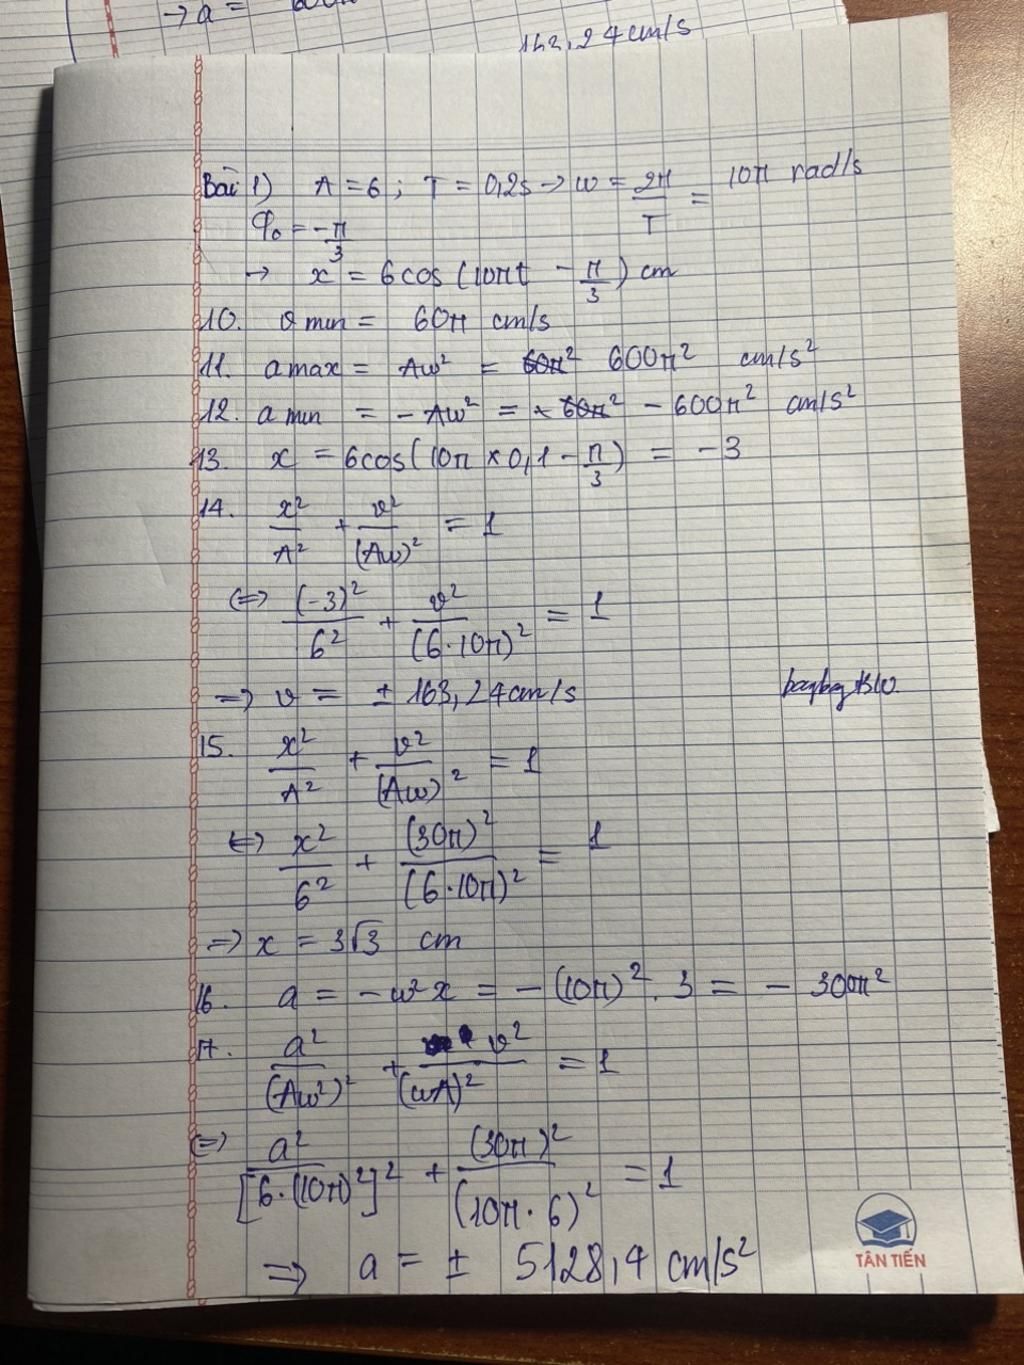 → a =
162,24cm/s
Bài 1) A = 6 ; T = 0,2s → ω = 2π/T = 10π rad/s
φ₀ = -π/3
→ x = 6cos(10πt - π/3) cm
10. vmin = 60π cm/s
11. amax = Aω² = 600π² cm/s²
12. amin = -Aω² = - 600π² cm/s²
13. x = 6cos(10π × 0,1 - π/3) = -3
14. x²/A² + v²/(Aω)² = 1
⇔ (-3)²/6² + v²/(6·10π)² = 1
⇒ v = ± 163,24cm/s
15. x²/A² + v²/(Aω)² = 1
⇔ x²/6² + (30π)²/(6·10π)² = 1
⇒ x = 3√3 cm
16. a = -ω²x = -(10π)².3 = - 300π²
17. a²/(Aω²)² + v²/(ωA)² = 1
⇔ a²/[6·(10π)²]² + (30π)²/(10π·6)² = 1
⇒ a = ± 5128,4 cm/s²
TÂN TIẾN